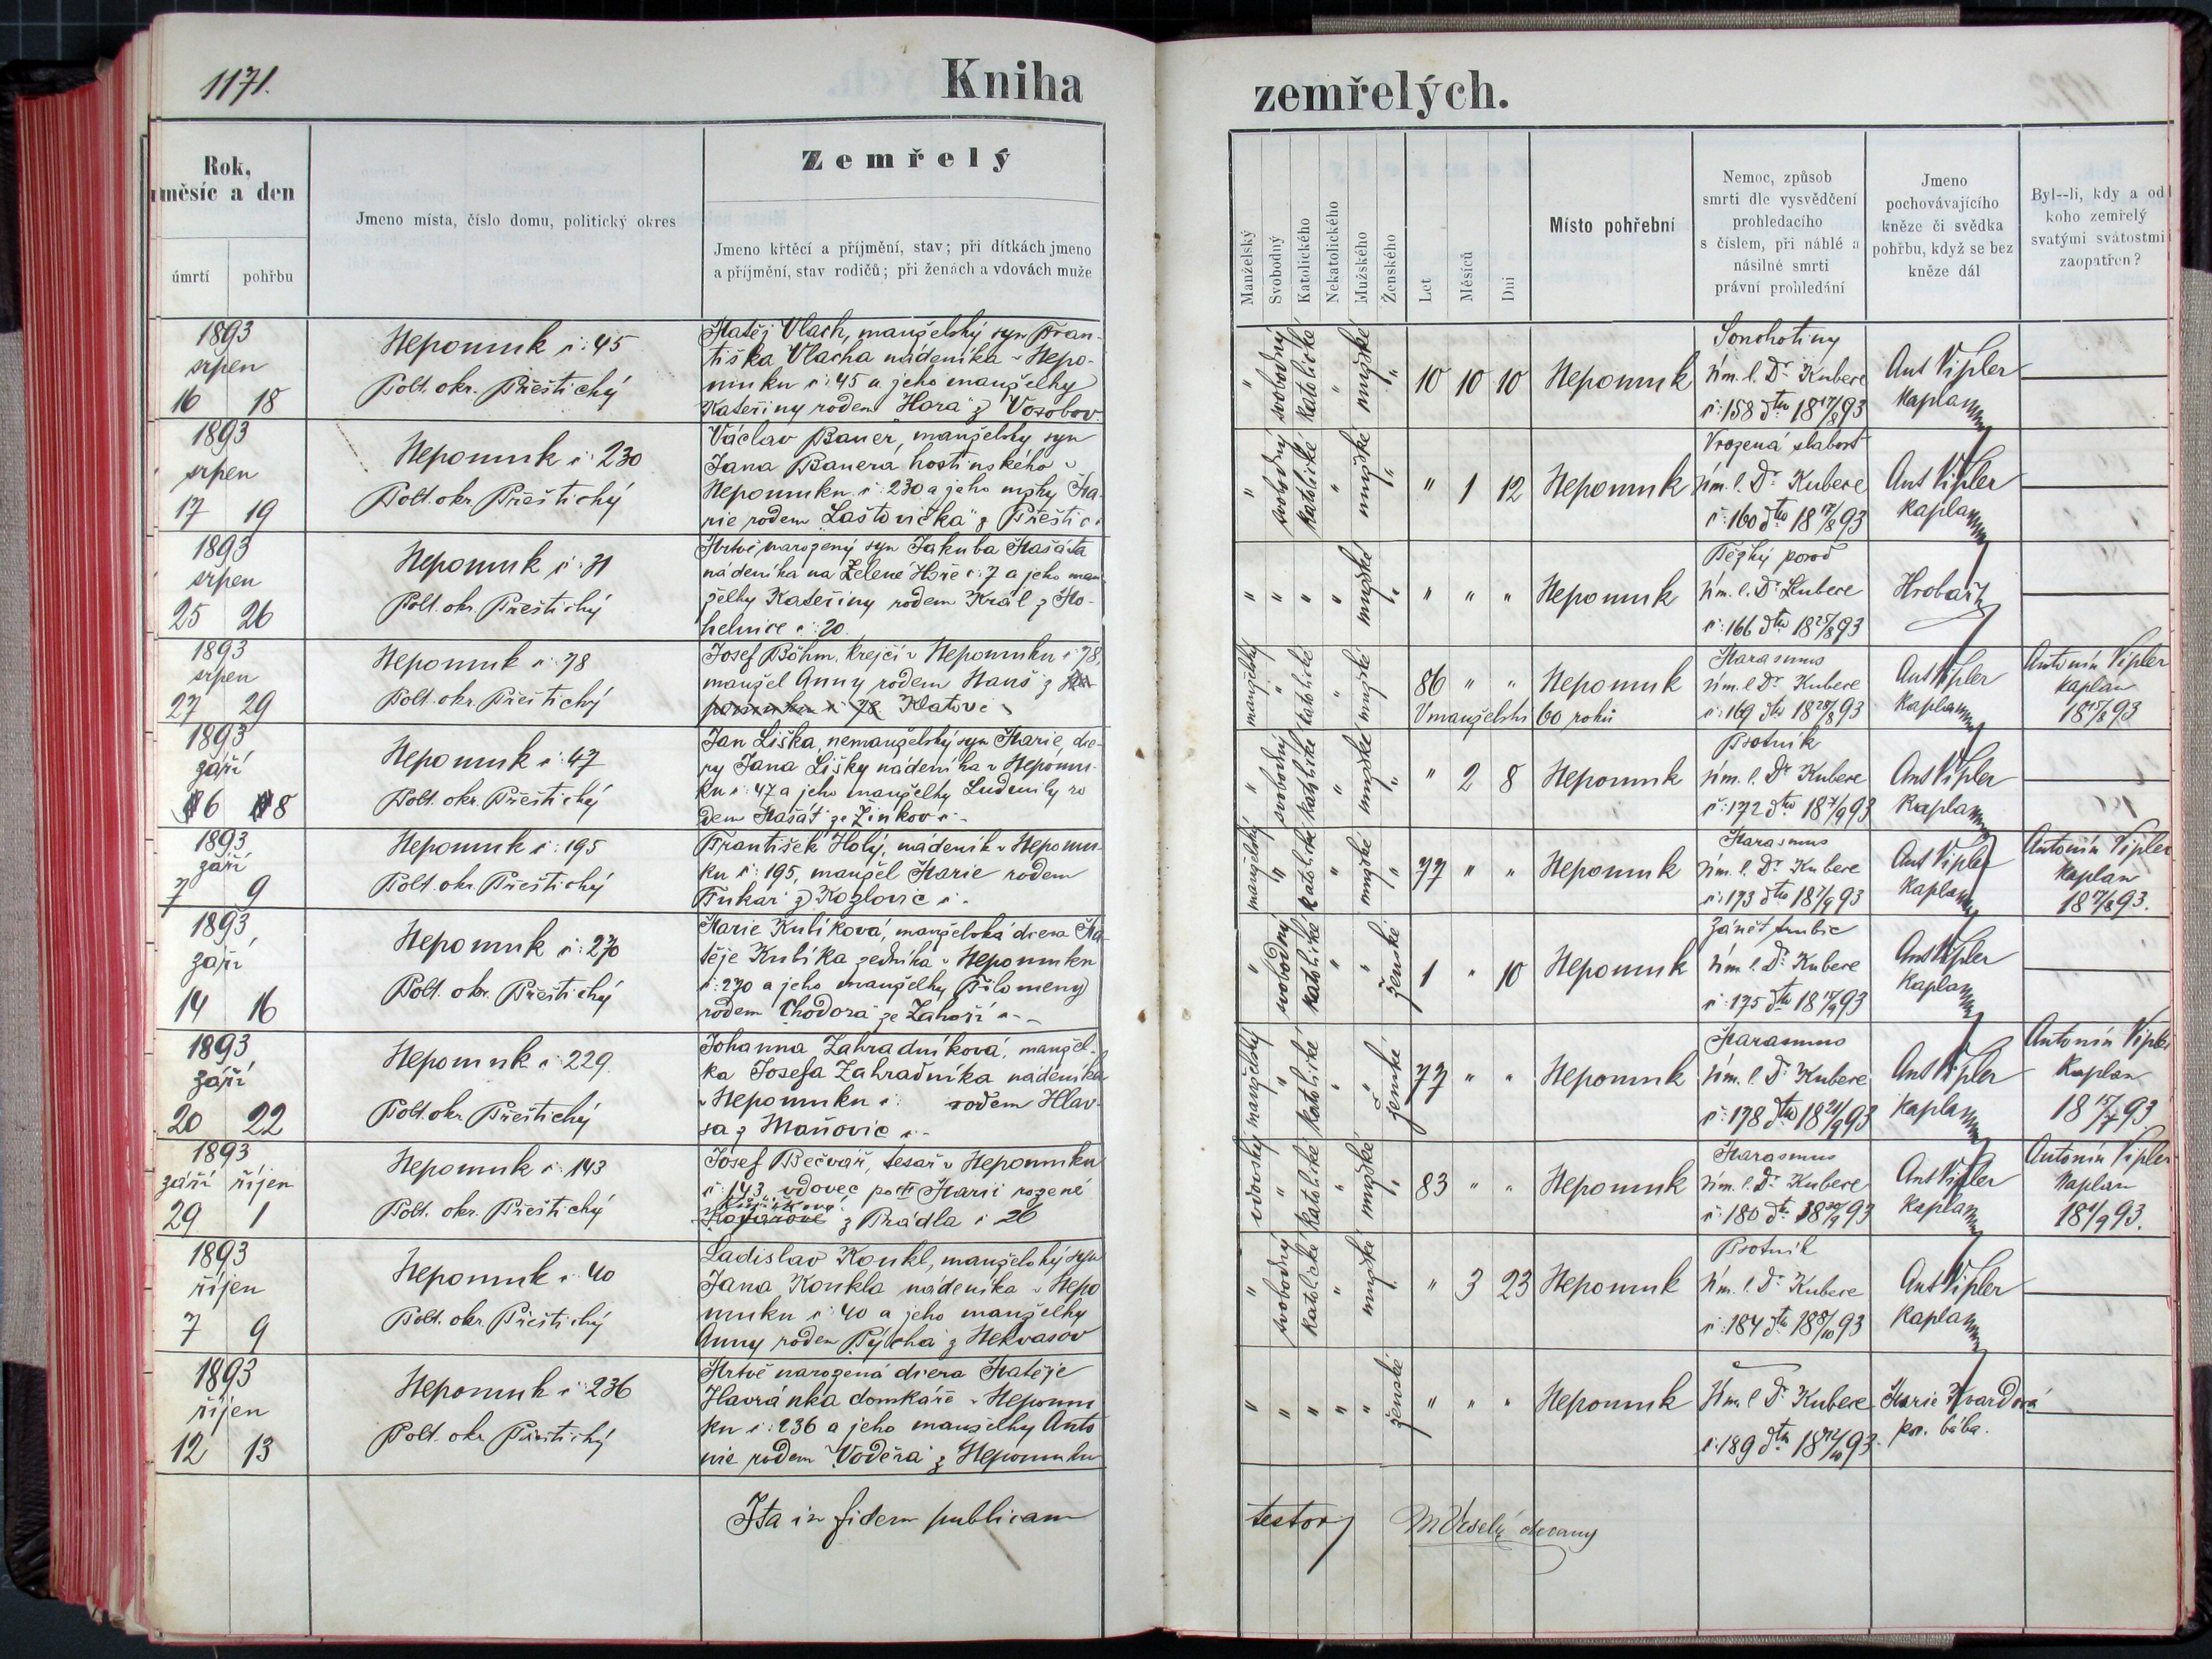 1171.
Kniha
zemřelých.
Rok,
měsíc a den
úmrtí
pohřbu
Jmeno místa, číslo domu, politický okres
Zemřelý
Jmeno křtěcí a příjmění, stav; při dítkách jmeno
a příjmění, stav rodičů; při ženách a vdovách muže
Manželský
Svobodný
Katolického
Nekatolického
Mužského
Ženského
Let
Měsíců
Dni
Místo pohřební
Nemoc, způsob
smrti dle vysvědčení
prohledacího
s číslem, při náhlé a
násilné smrti
právní prohledání
Jmeno
pochovávajícího
kněze či svědka
pohřbu, když se bez
kněze dál
Byl--li, kdy a od
koho zemřelý
svatými svátostmi
zaopatřen?
1893
srpen
16 18
Nepomuk č: 45
Polt. okr. Přeštický
Matěj Vlach, manželský syn Fran-
tiška Vlacha nádeníka v Nepo-
muku č: 45 a jeho manželky
Kateřiny rodem "Hora" z Vosobov
" svobodný katolické " mužské "
10 10 10
Nepomuk
Souchotiny
n'm. l. Dr. Kubere
č: 158 dto 18 17/8 93
Ant Vipler
Kaplan
1893
srpen
17 19
Nepomuk č: 230
Polt. okr. Přeštický
Václav Bauer, manželský syn
Jana Bauera hostinského v
Nepomuku č: 230 a jeho mžky Ma-
rie rodem "Laštovička" z Přeštic
" svobodný katolické " mužské "
" 1 12
Nepomuk
Vrozená slabost
n'm. l. Dr. Kubere
č: 160 dto 18 17/8 93
Ant Vipler
Kaplan
1893
srpen
25 26
Nepomuk č: 31
Polt. okr. Přeštický
Mrtvě narozený syn Jakuba Mašáta
nádeníka na Zelené Hoře č: 7 a jeho man-
želky Kateřiny rodem Král z Mo-
helnice č: 20.
" " " " mužské "
" " "
Nepomuk
Těžký porod
n'm. l. Dr. Kubere
č: 166 dto 18 25/8 93
Hrobař
1893
srpen
27 29
Nepomuk č: 78
Polt. okr. Přeštický
Josef Böhm, krejčí v Nepomuku č: 78,
manžel Anny rodem Hanš z Ne-
pomuku č 78 Klatov č
manželský " katolické " mužské "
86 " "
V manželství 60 roků
Nepomuk
Marasmus
n'm. l. Dr. Kubere
č: 169 dto 18 28/8 93
Ant Vipler
Kaplan
Antonín Vipler
kaplan
18 15/8 93
1893
září
6 8
Nepomuk č: 47
Polt. okr. Přeštický
Jan Liška, nemanželský syn Marie, dce-
ry Jana Lišky nádeníka v Nepomu-
ku č: 47 a jeho manželky Ludmily ro
dem Mašát ze Žinkov č: -
" svobodný katolické " mužské "
" 2 8
Nepomuk
Psotník
n'm. l. Dr. Kubere
č: 172 dto 18 7/9 93
Ant Vipler
Kaplan
1893
září
7 9
Nepomuk č: 195
Polt. okr. Přeštický
František Holý, nádeník v Nepomu-
ku č: 195, manžel Marie rodem
Fukar z Kozlovic č: -
manželský " katolické " mužské "
77 " "
Nepomuk
Marasmus
n'm. l. Dr. Kubere
č: 173 dto 18 7/9 93
Ant Vipler
Kaplan
Antonín Vipler
Kaplan
18 7/8 93.
1893
září
14 16
Nepomuk č: 270
Polt. okr. Přeštický
Marie Kubíková, manželská dcera Ma-
těje Kubíka zedníka v Nepomuku
č: 270 a jeho manželky Filomeny
rodem Chodora ze Záhoří č - -
" svobodný katolické " " ženské
1 " 10
Nepomuk
Zánět trubic
n'm l. Dr. Kubere
č: 175 dto 18 15/9 93
Ant Vipler
Kaplan
1893
září
20 22
Nepomuk č: 229.
Polt. okr. Přeštický
Johanna Zahradníková, manžel-
ka Josefa Zahradníka nádeníka
v Nepomuku č: rodem Hlav-
sa z Maňovic č: -
manželský " katolické " " ženské
77 " "
Nepomuk
Marasmus
n'm. l. Dr. Kubere
č: 178 dto 18 21/9 93
Ant Vipler
Kaplan
Antonín Vipler
Kaplan
18 15/7 93
1893
září říjen
29 1
Nepomuk č: 143
Polt. okr. Přeštický
Josef Bečvář, tesař v Nepomuku
č: 143, vdovec po II Marii rozené
z Prádla č 26
vdovský " katolické " mužské "
83 " "
Nepomuk
Marasmus
n'm. l. Dr. Kubere
č: 180 dto 18 30/9 93
Ant Vipler
Kaplan
Antonín Vipler
Kaplan
18 1/9 93.
1893
říjen
7 9
Nepomuk č: 40
Polt. okr. Přeštický
Ladislav Koukl, manželský syn
Jana Koukla nádeníka v Nepo
muku č: 40 a jeho manželky
Anny rodem Pýcha z Nekvasov
" svobodný katolické " mužské "
" 3 23
Nepomuk
Psotník
n'm. l. Dr. Kubere
č: 184 dto 18 8/10 93
Ant Vipler
Kaplan
1893
říjen
12 13
Nepomuk č: 236
Polt. okr. Přeštický
Mrtvě narozená dcera Matěje
Havránka domkáře v Nepomu
ku č: 236 a jeho manželky Anto
nie rodem Voděra z Nepomuku
" " " " " ženské
" " "
Nepomuk
n'm. l. Dr. Kubere
č: 189 dto 18 12/10 93.
Marie Kvardová
por. bába.
Ita in fidem publicam
testor